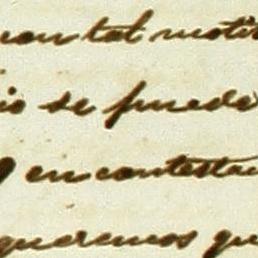 con tal moti
io se puede
en contesta
queremos qu